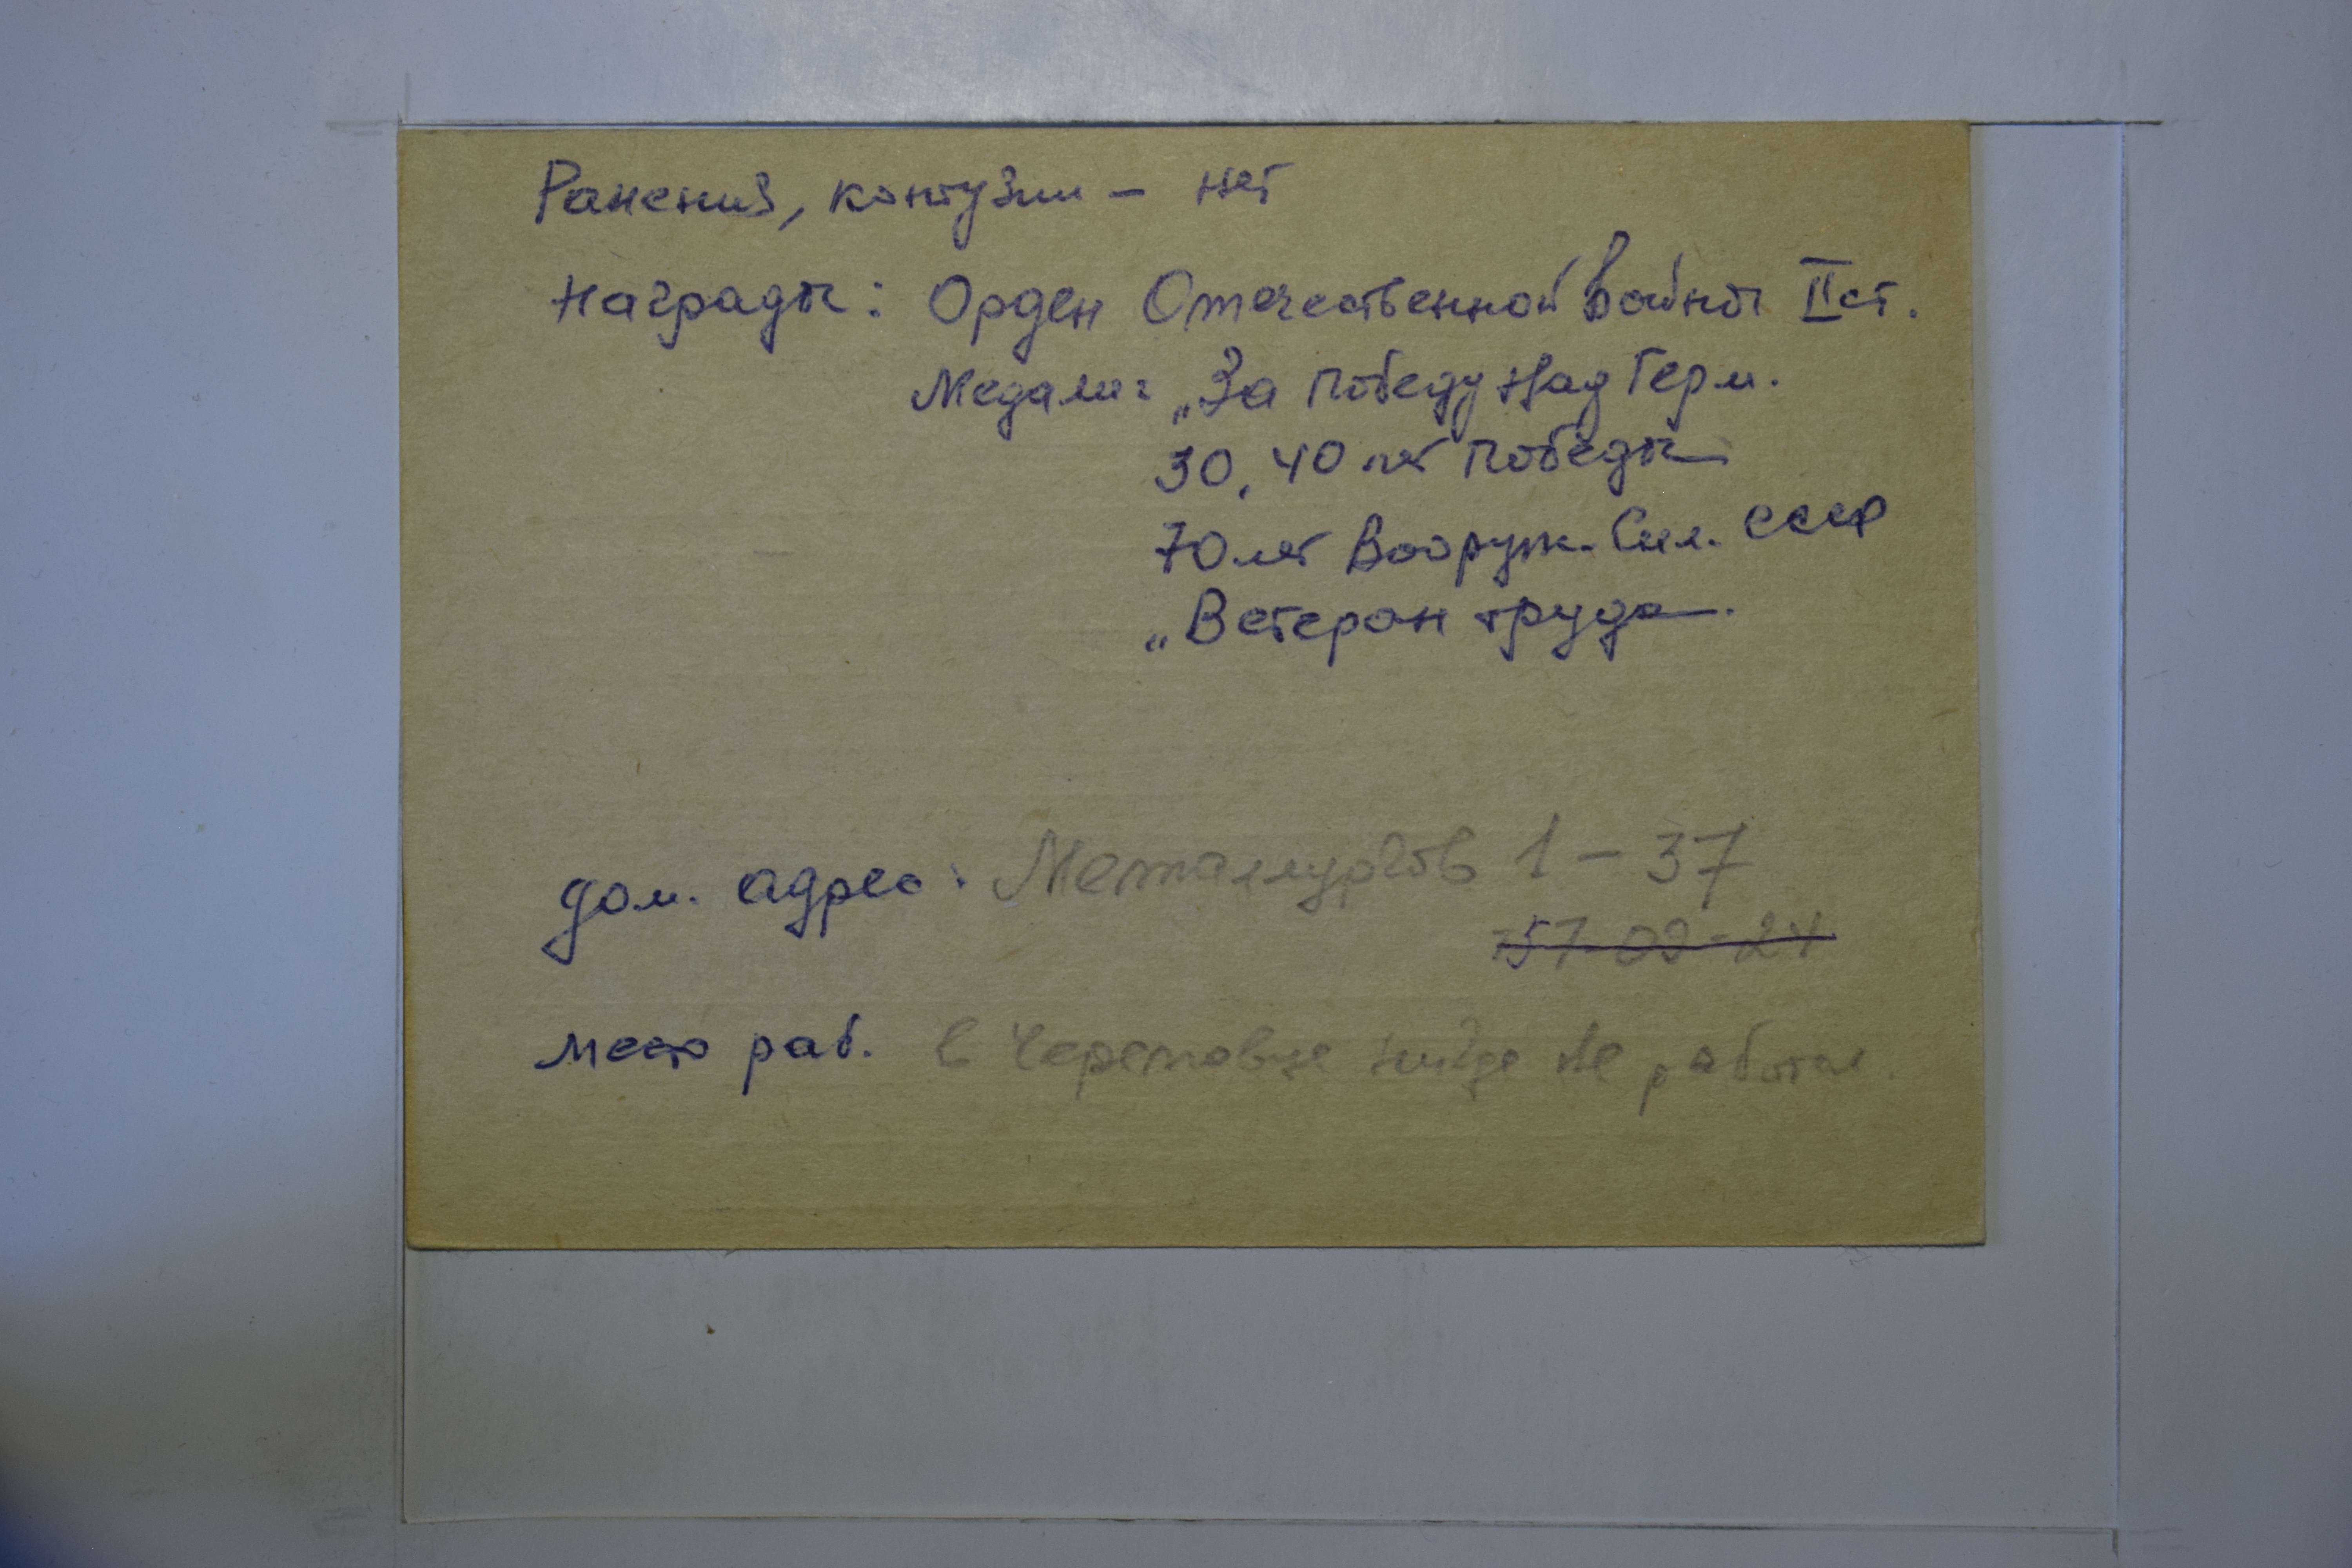 Ранений, контузии – нет
Награды: Орден Отечественной Войны II ст.
Медали: „За Победу Над Герм.
30, 40 лет Победы
70 лет Вооруж. Сил. СССР
„Ветеран труда.
дом. адрес: Металлургов 1 – 37
57-09-24
место раб. в Череповце нигде не работал.